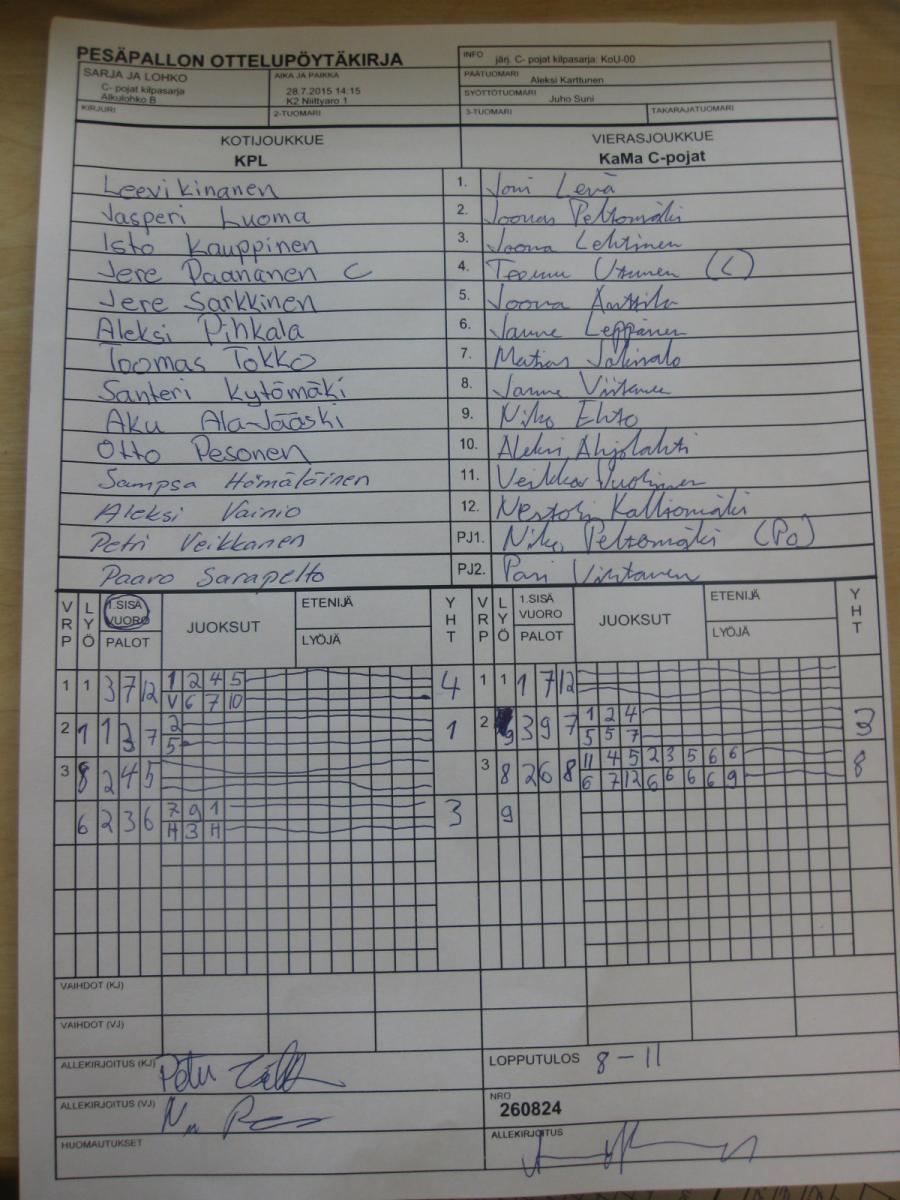 PESÄPALLON OTTELUPÖYTÄKIRJA
INFO järj. C- pojat kilpasarja: KoU-00
SARJA JA LOHKO
C- pojat kilpasarja
Alkulohko B
AIKA JA PAIKKA
28.7.2015 14:15
K2 Niittyaro 1
PÄÄTUOMARI Aleksi Karttunen
SYÖTTÖTUOMARI Juho Suni
KIRJURI 2-TUOMARI 3-TUOMARI TAKARAJATUOMARI
KOTIJOUKKUE VIERASJOUKKUE
KPL KaMa C-pojat
Leevi Kinanen 1. Joni Levä
Jasperi Luoma 2. Joonas Peltomäki
Isto Kauppinen 3. Joona Lehtinen
Jere Paananen C 4. Teemu (C)
Jere Sarkkinen 5. Joona Anttila
Aleksi Pihkala 6. Janne Leppänen
Toomas Tokko 7. Matias
Santeri Kytömäki 8. Janne Virtanen
Aku Ala-Jääski 9. Niko Ehto
Otto Pesonen 10. Aleksi Ahjolahti
Sampsa Hämäläinen 11. Veikka
Aleksi Vainio 12. Kalliomäki
Petri Veikkanen PJ1. Niko Peltomäki (Po)
Paavo Sarapelto PJ2. Pasi Virtanen
VRP LYÖ 1.SISÄ VUORO PALOT JUOKSUT ETENIJÄ LYÖJÄ YHT VRP LYÖ 1.SISÄ VUORO PALOT JUOKSUT ETENIJÄ LYÖJÄ YHT
1 1 3 7 12 1 2 4 5 4 1 1 1 7 12
V 6 7 10
2 1 1 3 7 2 1 2 9 3 9 7 1 2 4 3
5 5 5 7
3 8 2 4 5 3 8 2 6 8 11 4 5 2 3 5 6 6 8
6 7 12 6 6 6 6 9
6 2 3 6 7 9 1 3 9
H 3 H
VAIHDOT (KJ)
VAIHDOT (VJ)
ALLEKIRJOITUS (KJ) LOPPUTULOS 8 - 11
ALLEKIRJOITUS (VJ) NRO
260824
HUOMAUTUKSET ALLEKIRJOITUS